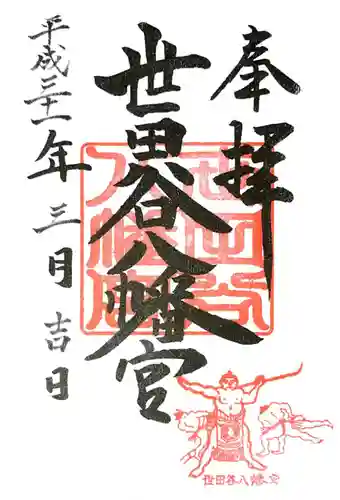 奉拝
世田谷八幡宮
平成三十一年三月吉日
世田谷八幡宮
世田谷八幡宮